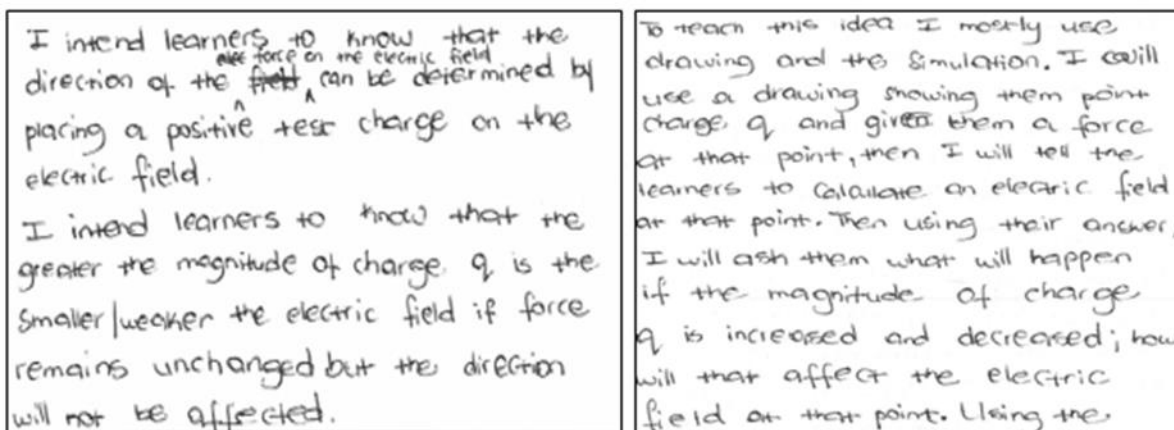 I intend learners to know that the
force on the electric field
direction of the field can be determined by
placing a positive test charge on the
electric field.
I intend learners to know that the
greater the magnitude of charge q is the
smaller/weaker the electric field if force
remains unchanged but the direction
will not be affected.
To teach this idea I mostly use
drawing and the simulation. I will
use a drawing showing them point
charge q and given them a force
at that point, then I will tell the
learners to calculate an electric field
at that point. Then using their answer,
I will ask them what will happen
if the magnitude of charge
q is increased and decreased; how
will that affect the electric
field at that point. Using the